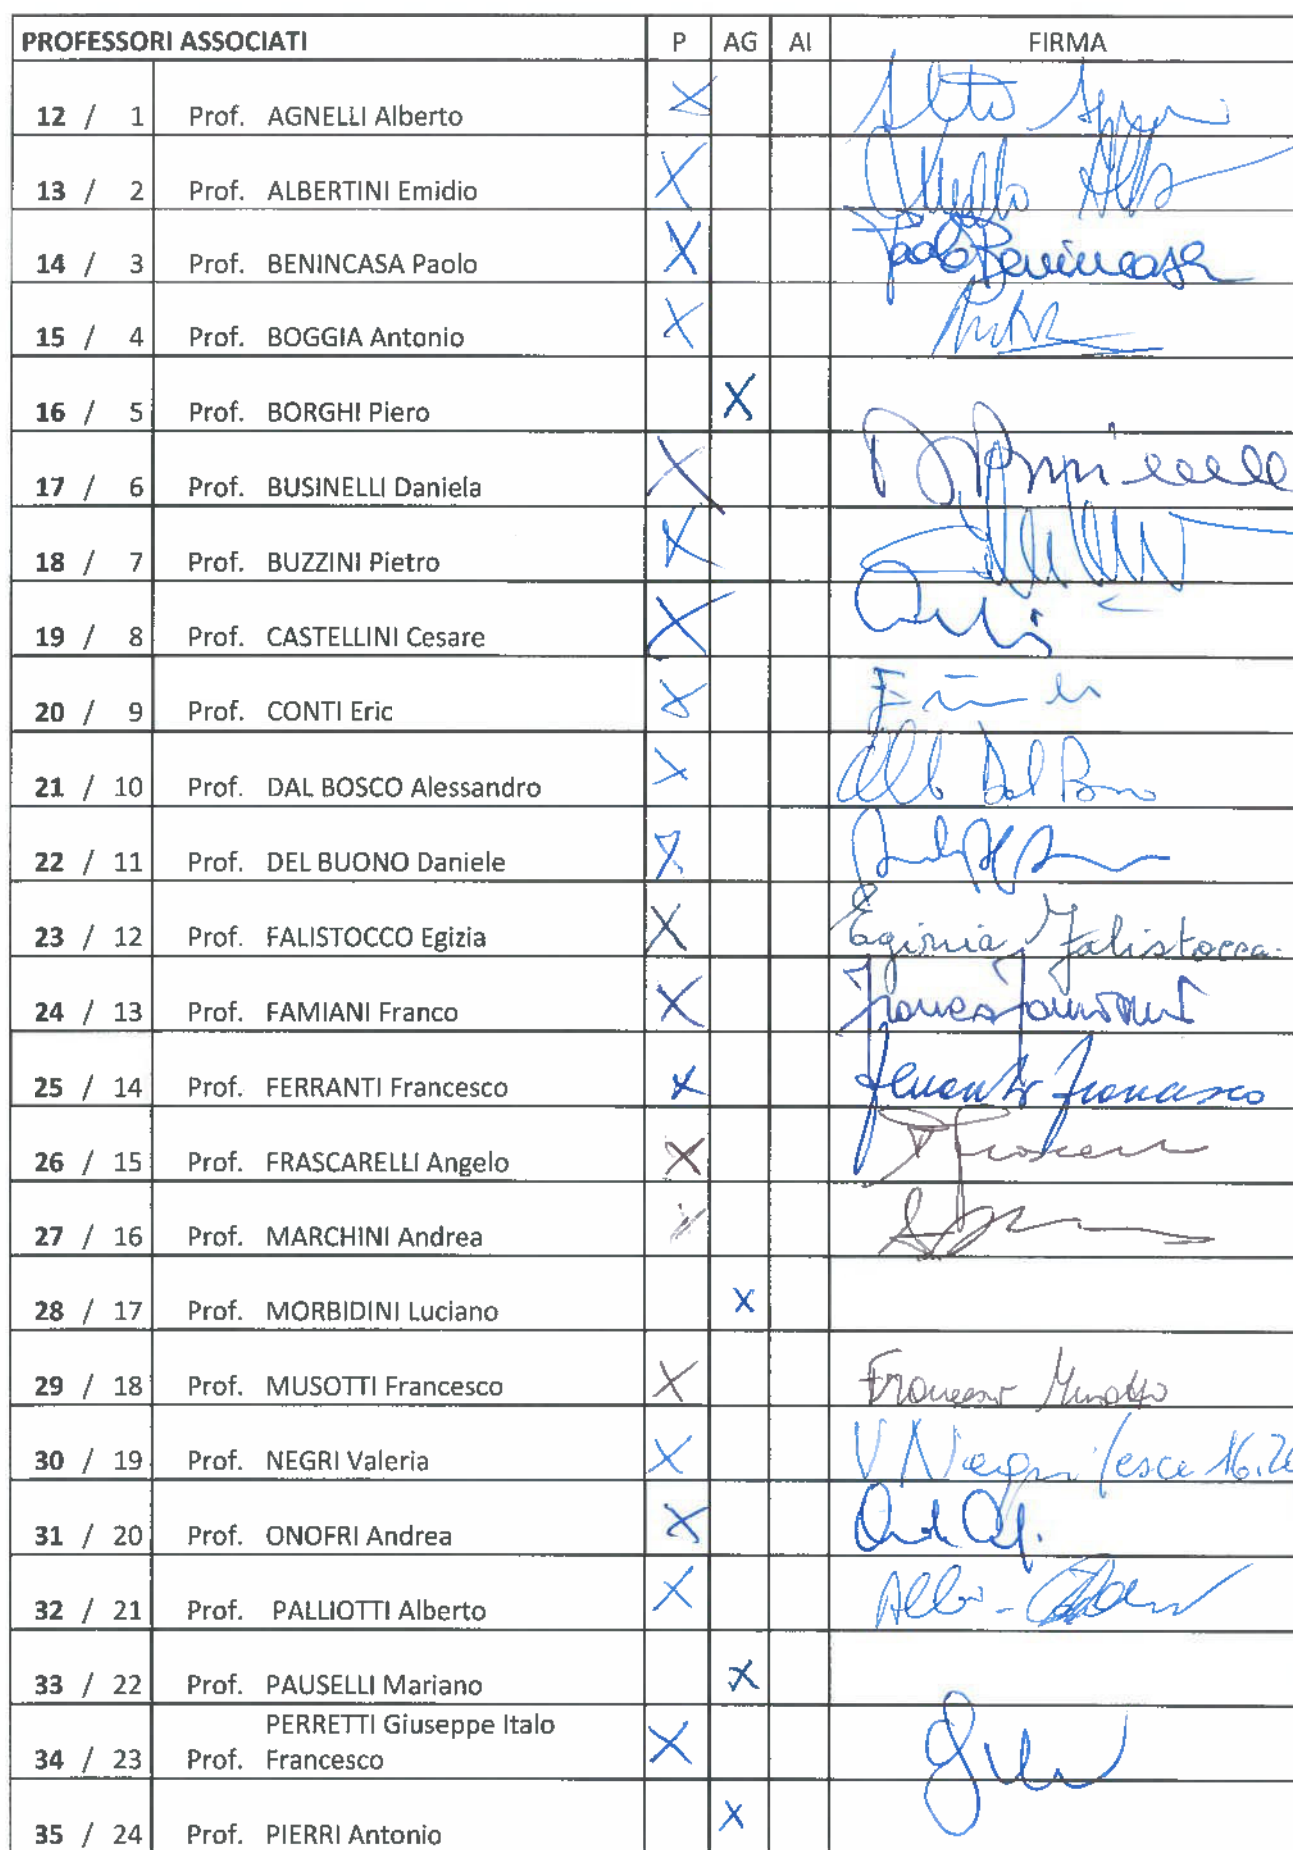 PROFESSORI ASSOCIATI P AG AI FIRMA
12 / 1 Prof. AGNELLI Alberto X
13 / 2 Prof. ALBERTINI Emidio X
14 / 3 Prof. BENINCASA Paolo X Paolo Benincasa
15 / 4 Prof. BOGGIA Antonio X
16 / 5 Prof. BORGHI Piero X
17 / 6 Prof. BUSINELLI Daniela X
18 / 7 Prof. BUZZINI Pietro X
19 / 8 Prof. CASTELLINI Cesare X
20 / 9 Prof. CONTI Eric X
21 / 10 Prof. DAL BOSCO Alessandro X Dal Bosco
22 / 11 Prof. DEL BUONO Daniele X
23 / 12 Prof. FALISTOCCO Egizia X Egizia Falistocco
24 / 13 Prof. FAMIANI Franco X Franco Famiani
25 / 14 Prof. FERRANTI Francesco X Ferranti Francesco
26 / 15 Prof. FRASCARELLI Angelo X
27 / 16 Prof. MARCHINI Andrea X
28 / 17 Prof. MORBIDINI Luciano X
29 / 18 Prof. MUSOTTI Francesco X Francesco Musotti
30 / 19 Prof. NEGRI Valeria X V Negri (esce 16.20
31 / 20 Prof. ONOFRI Andrea X
32 / 21 Prof. PALLIOTTI Alberto X
33 / 22 Prof. PAUSELLI Mariano X
PERRETTI Giuseppe Italo
34 / 23 Prof. Francesco X
35 / 24 Prof. PIERRI Antonio X